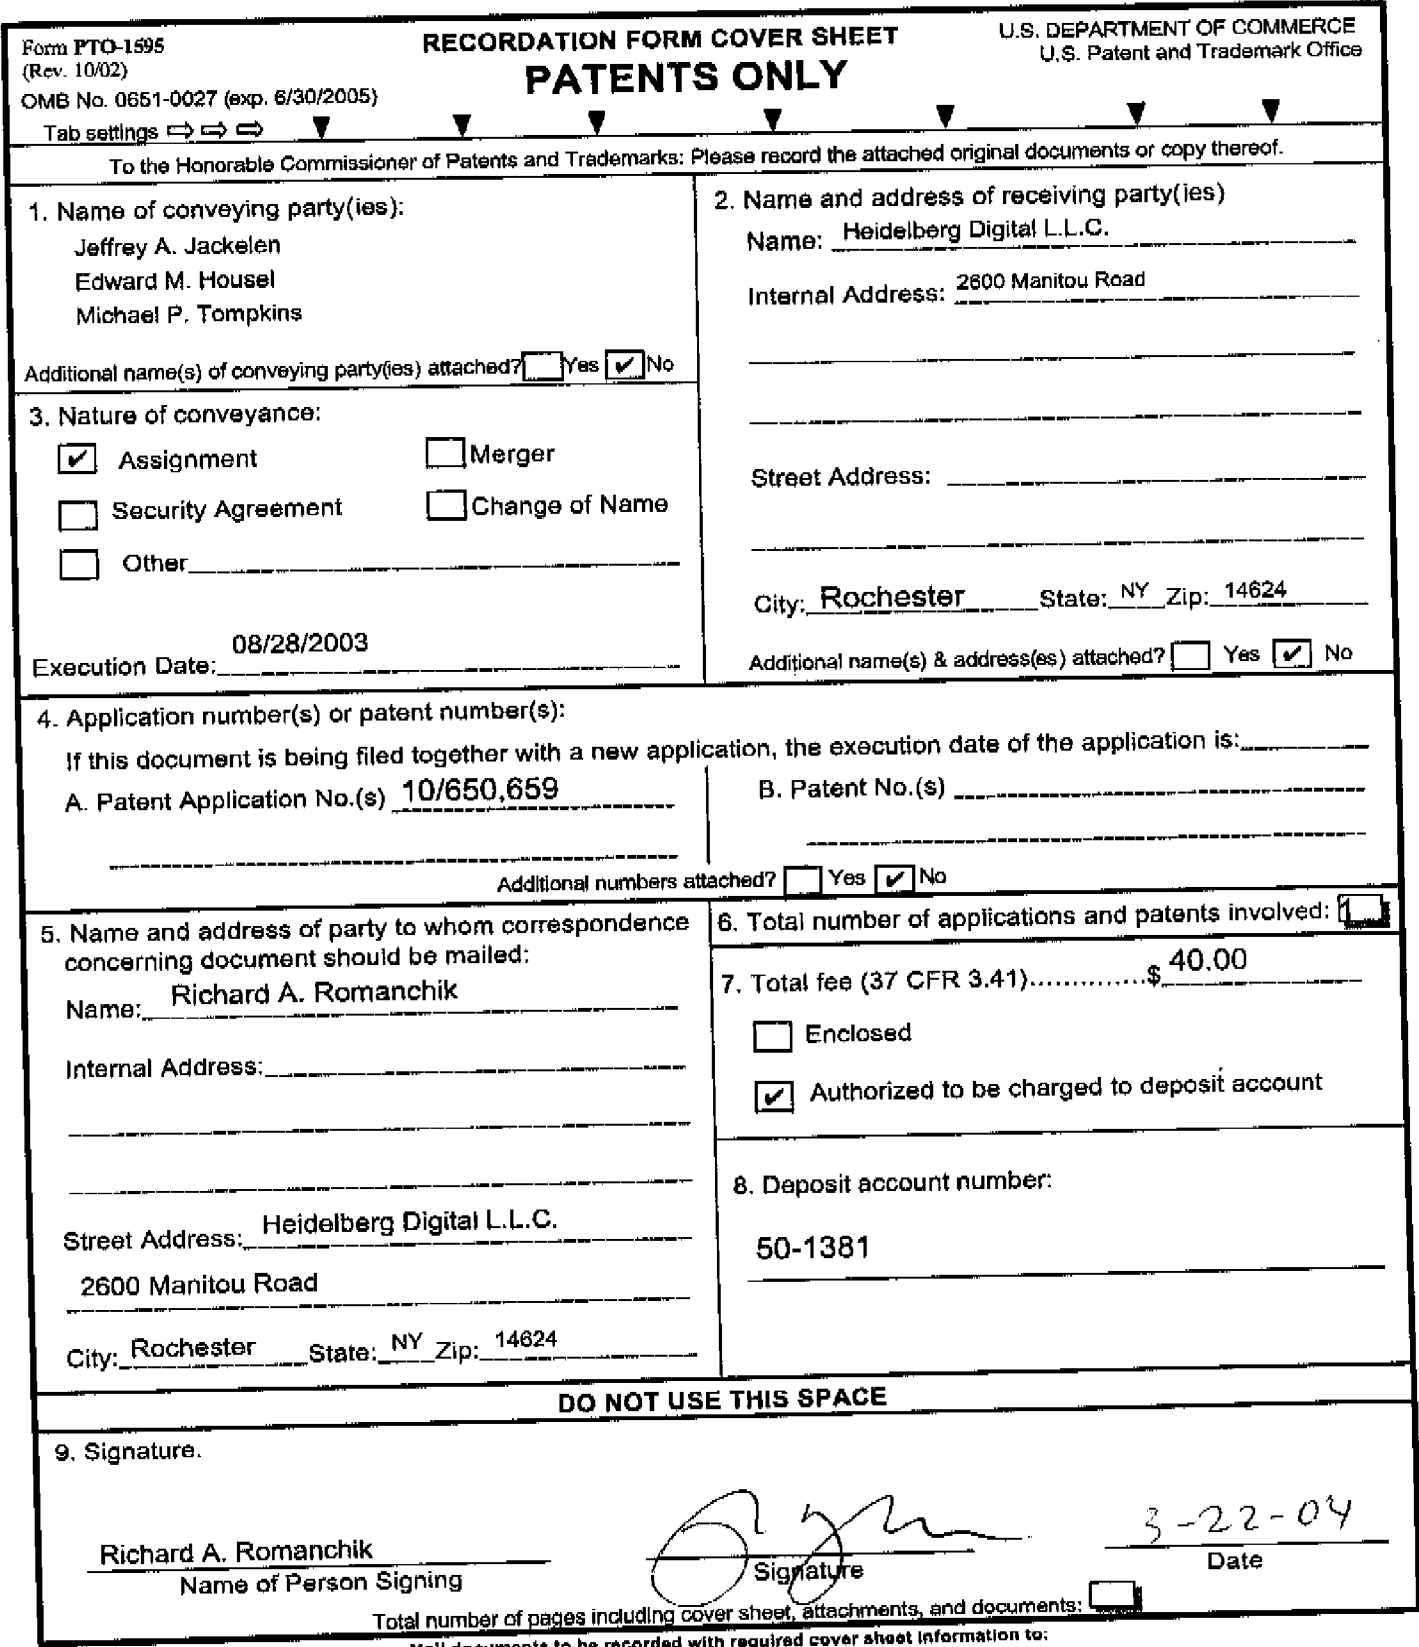 Form PTO-1595
(Rev. 10/02)
OMB No. 0651-0027 (exp. 6/30/2005)
Tab settings
RECORDATION FORM COVER SHEET
PATENTS ONLY
U.S. DEPARTMENT OF COMMERCE
U.S. Patent and Trademark Office
To the Honorable Commissioner of Patents and Trademarks: Please record the attached original documents or copy thereof.
1. Name of conveying party(ies):
Jeffrey A. Jackelen
Edward M. Housel
Michael P. Tompkins
Additional name(s) of conveying party(ies) attached? Yes ✔ No
2. Name and address of receiving party(ies)
Name: Heidelberg Digital L.L.C.
Internal Address: 2600 Manitou Road
Street Address:
City: Rochester State: NY Zip: 14624
Additional name(s) & address(es) attached? Yes ✔ No
3. Nature of conveyance:
✔ Assignment Merger
Security Agreement Change of Name
Other
Execution Date: 08/28/2003
4. Application number(s) or patent number(s):
If this document is being filed together with a new application, the execution date of the application is:
A. Patent Application No.(s) 10/650,659
B. Patent No.(s)
Additional numbers attached? Yes ✔ No
5. Name and address of party to whom correspondence
concerning document should be mailed:
Name: Richard A. Romanchik
Internal Address:
Street Address: Heidelberg Digital L.L.C.
2600 Manitou Road
City: Rochester State: NY Zip: 14624
6. Total number of applications and patents involved: 1
7. Total fee (37 CFR 3.41)..............$ 40.00
Enclosed
✔ Authorized to be charged to deposit account
8. Deposit account number:
50-1381
DO NOT USE THIS SPACE
9. Signature.
Richard A. Romanchik
Name of Person Signing
Signature
3-22-04
Date
Total number of pages including cover sheet, attachments, and documents:
Mail documents to be recorded with required cover sheet information to: